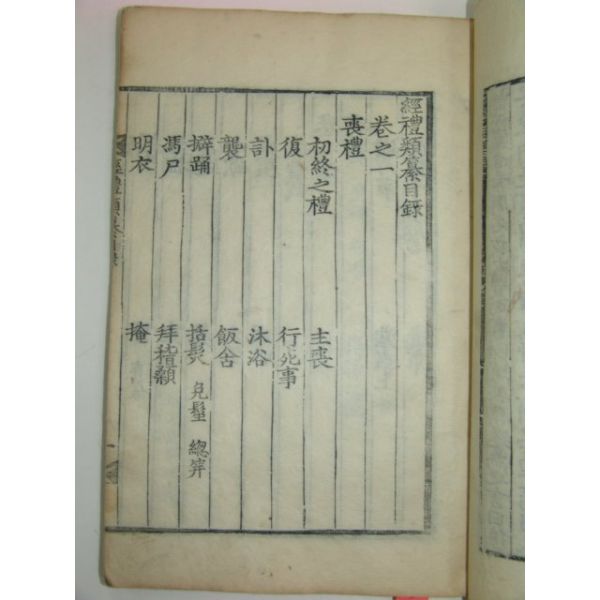 經禮類纂目錄
卷之一
喪禮
初終之禮 主喪
復 行死事
訃 沐浴
襲 飯含
擗踊 括髮 免髽 緫筓
馮尸 拜稽顙
明衣 掩
經禮類纂目錄
一